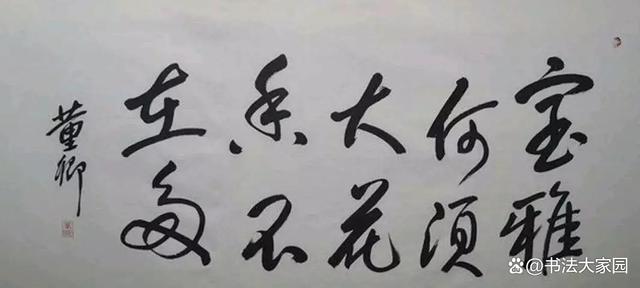 室雅
何须
大花
香不
在多
董卿
@书法大家园